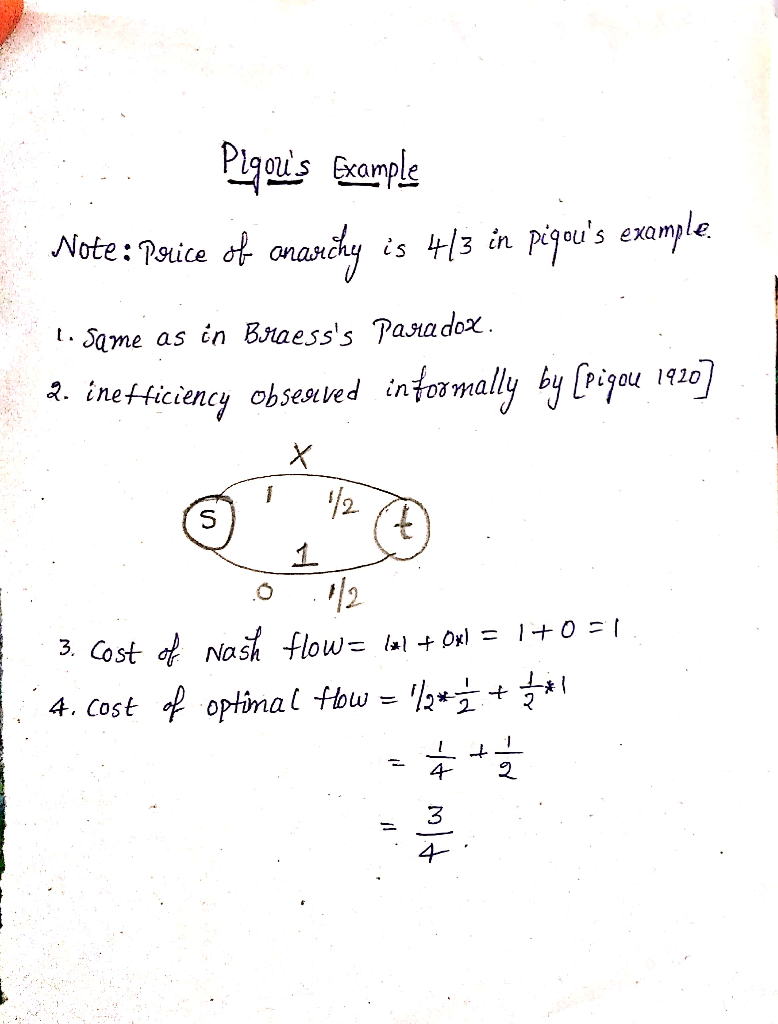 Pigou's Example
Note: Price of anarchy is 4/3 in pigou's example.
1. Same as in Braess's Paradox.
2. inefficiency observed informally by [Pigou 1920]
X
S 1 1/2 t
1
0 1/2
3. Cost of Nash flow = 1*1 + 0*1 = 1+0 = 1
4. Cost of optimal flow = 1/2*1/2 + 1/2*1
= 1/4 + 1/2
= 3/4.